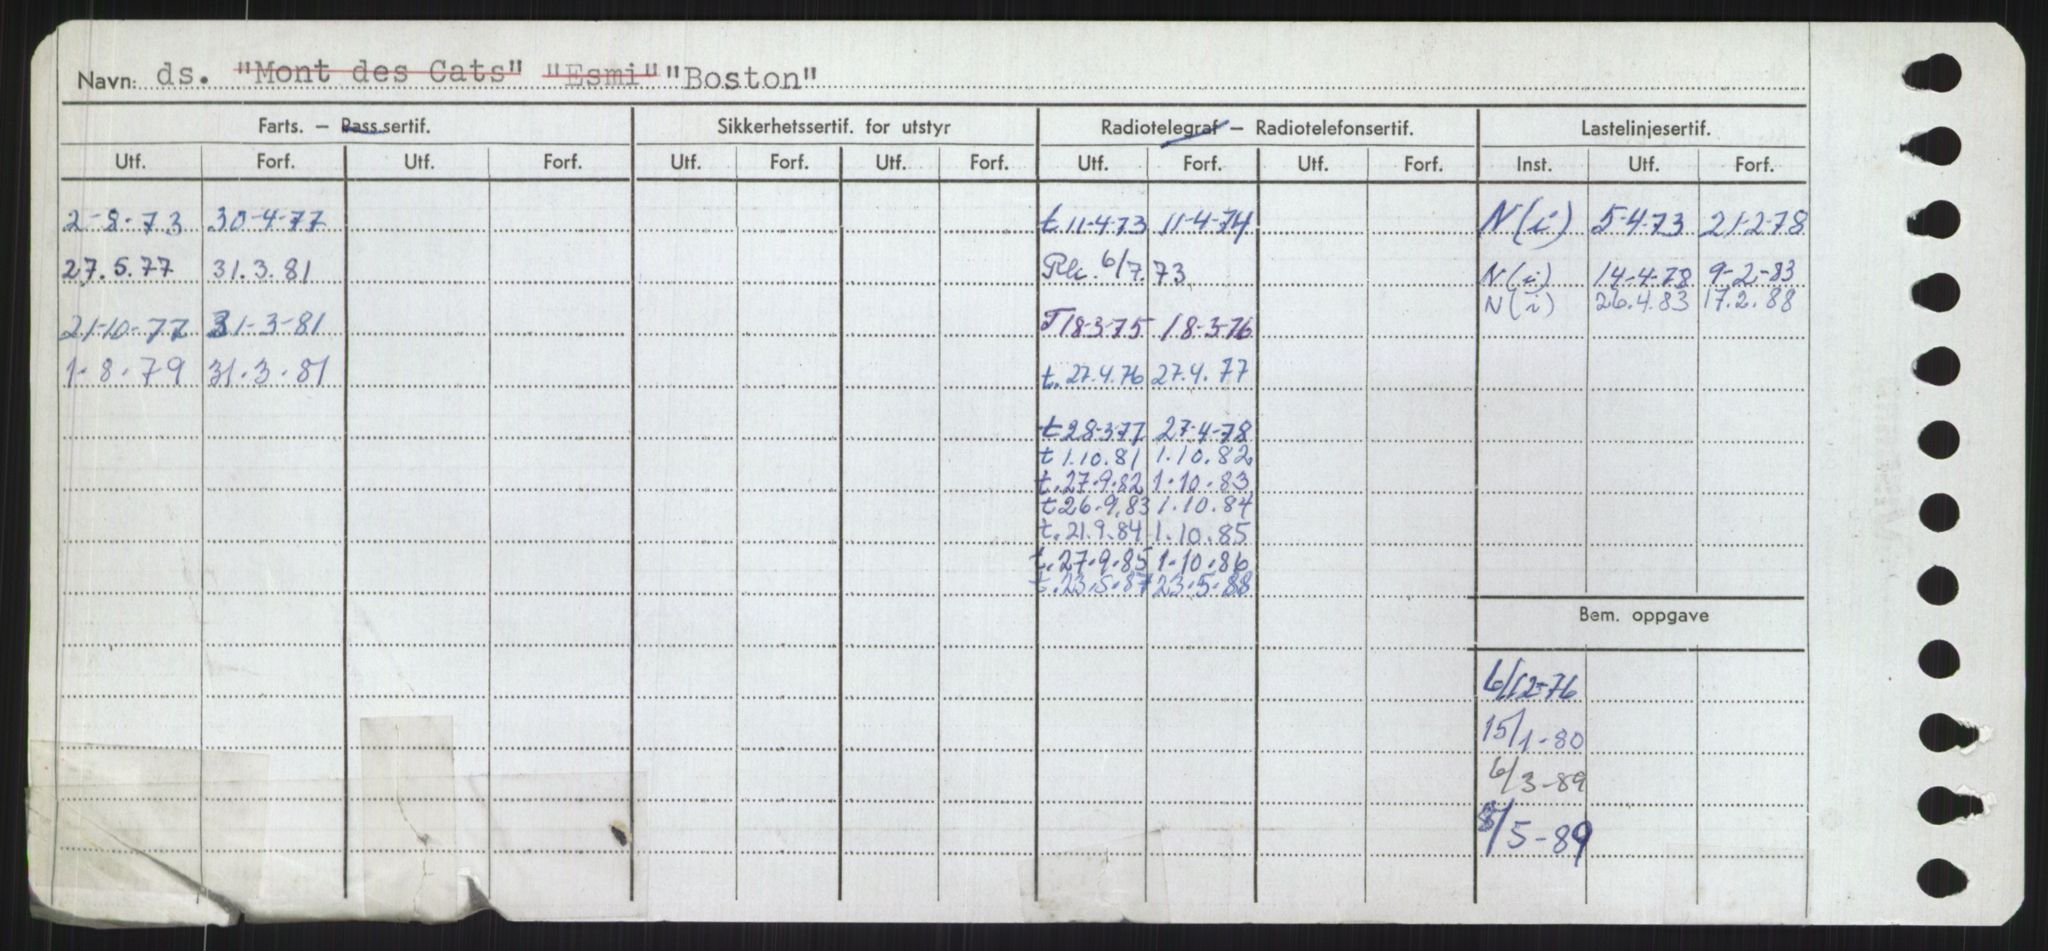 Navn: ds. "Mont des Cats" "Esmi" "Boston"
Farts. — Pass.sertif. Sikkerhetssertif. for utstyr Radiotelegraf — Radiotelefonsertif. Lastelinjesertif.
Utf. Forf. Utf. Forf. Utf. Forf. Utf. Forf. Utf. Forf. Utf. Forf. Inst. Utf. Forf.
2-8-73 30-4-77 t 11-4-73 11-4-74 N(i) 5-4-73 21-2-78
27.5.77 31.3.81 6/7.73 N(i) 14-4-78 9-2-83
N(i) 26.4.83 17.2.88
21-10-77 31-3-81 T 18-3-75 18-3-76
1-8-79 31.3.81 t. 27.4.76 27.4.77
t 28-3-77 27-4-78
t 1.10.81 1.10.82
t. 27.9.82 1.10.83
t 26.9.83 1.10.84
t. 21.9.84 1.10.85
t. 27.9.85 1.10.86
t. 23.5.87 23.5.88
Bem. oppgave
6/12-76
15/1-80
6/3-89
8/5-89